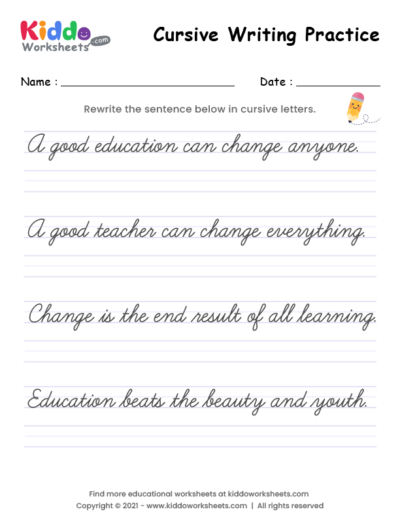 Kiddo
Worksheets .com
Cursive Writing Practice
Name : Date :
Rewrite the sentence below in cursive letters.
A good education can change anyone.
A good teacher can change everything.
Change is the end result of all learning.
Education beats the beauty and youth.
Find more educational worksheets at kiddoworksheets.com
Copyright © 2021 - www.kiddoworksheets.com | All rights reserved